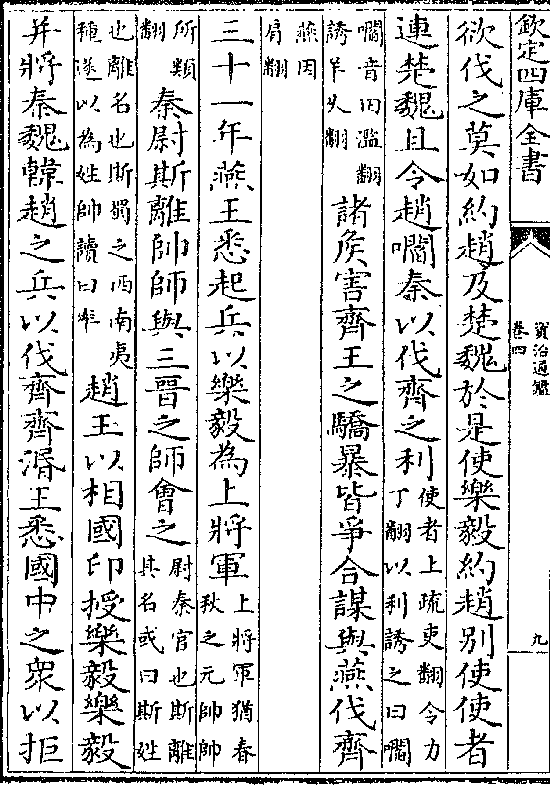 欽定四庫全書
資治通鑑
卷四
九
欲伐之莫如約趙及楚魏於是使樂毅約趙别使使者
連楚魏且令趙嚪秦以伐齊之利使者上疏吏翻令力
丁翻以利誘之曰嚪
嚪音田濫翻
誘羊久翻諸侯害齊王之驕暴皆爭合謀與燕伐齊
燕因
肩翻
三十一年燕王悉起兵以樂毅為上將軍上將軍猶春
秋之元帥帥
所類
翻秦尉斯離帥師與三晉之師會之尉秦官也斯離
其名或曰斯姓
也離名也斯蜀之西南夷
種遂以為姓帥讀曰率趙王以相國印授樂毅樂毅
并將秦魏韓趙之兵以伐齊齊湣王悉國中之衆以拒